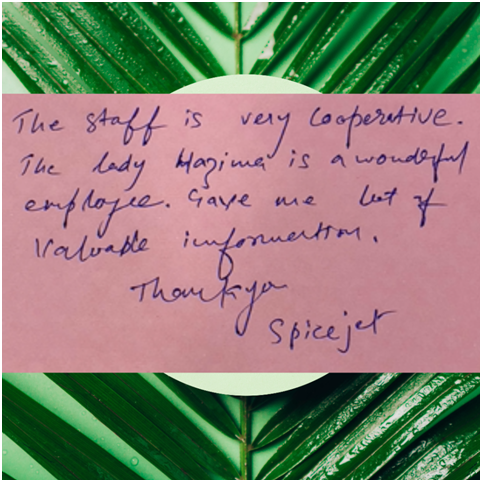 The staff is very cooperative.
The lady Hazima is a wonderful
employee. Gave me lot of
Valuable information.
Thankyou
Spicejet